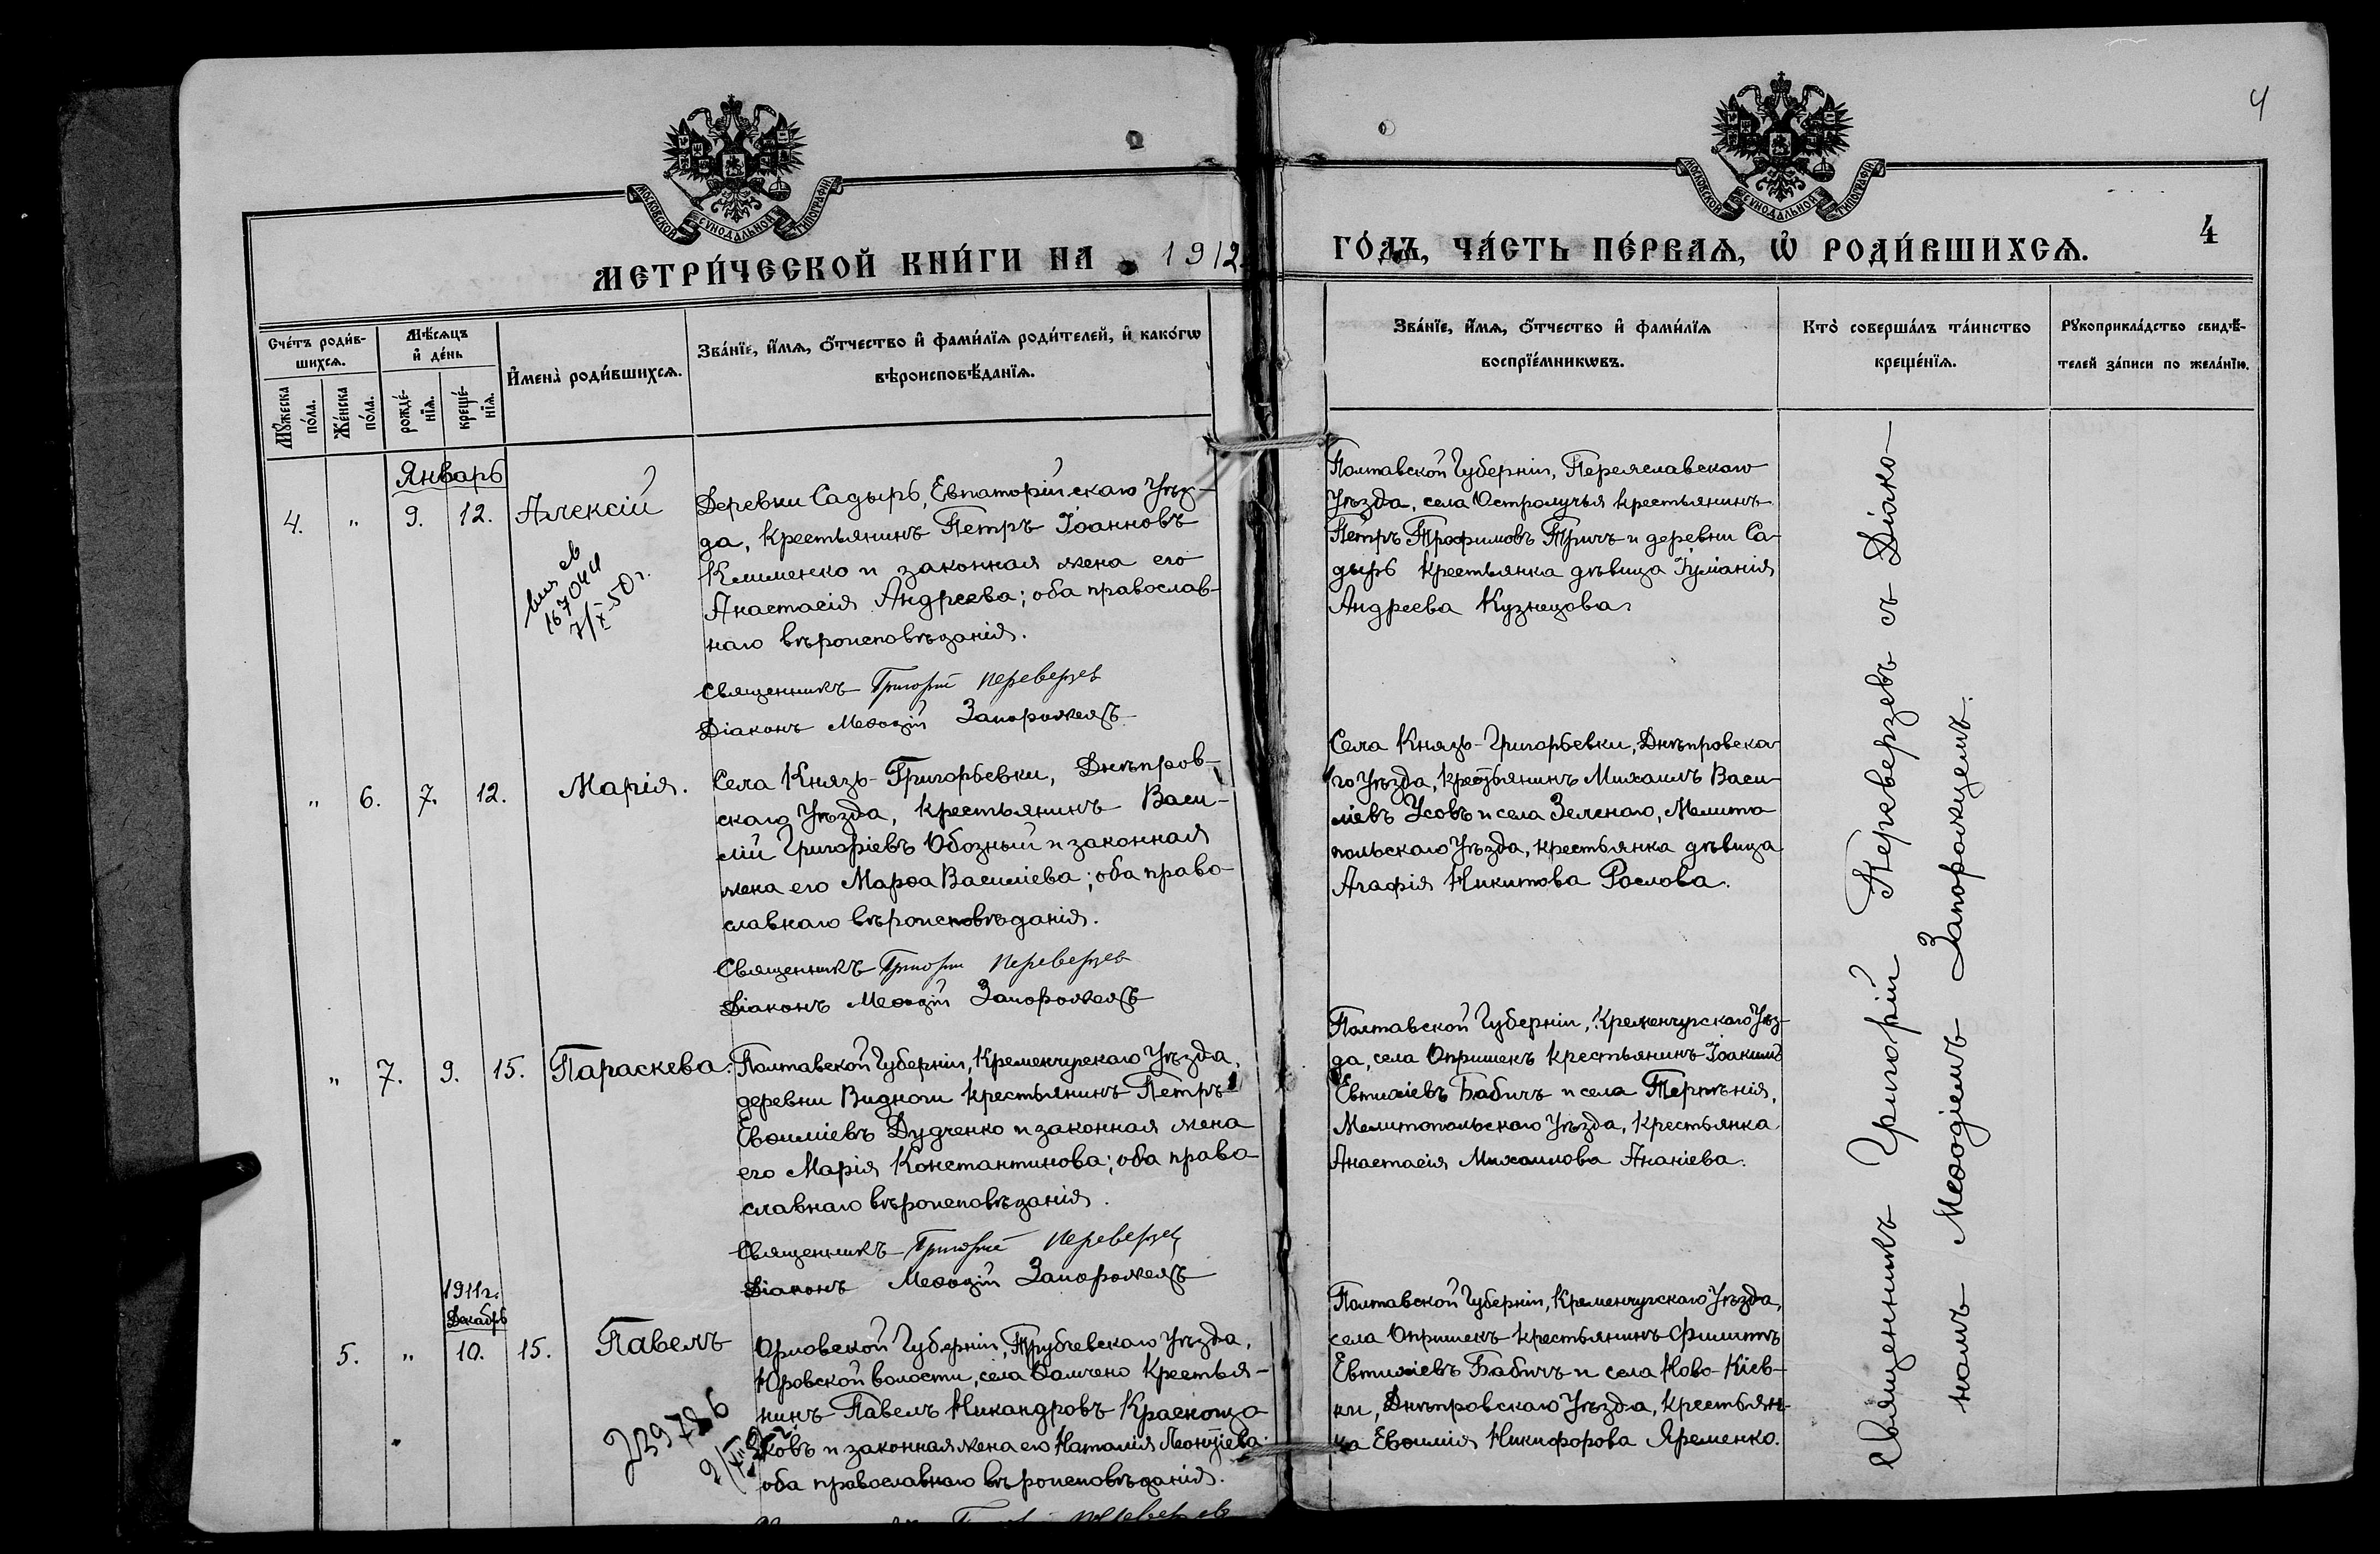 4
МОСКОВСКОЙ СѴНОДАЛЬНОЙ ТИПОГРАФІИ
МОСКОВСКОЙ СѴНОДАЛЬНОЙ ТИПОГРАФІИ
МЕТРИ́ЧЕСКОЙ КНИ́ГИ НА 1912
ГО́ДЪ, ЧА́СТЬ ПЕ́РВАѦ, Ѡ РОДИ́ВШИХСѦ.
4
Сче́тъ роди́в-
шихсѧ.
Мꙋ́жеска
по́ла.
Же́нска
по́ла.
Мѣ́сѧцъ
и҆ де́нь
рожде́-
нїѧ.
креще́-
нїѧ.
И҆мена̀ роди́вшихсѧ.
Зва́нїе, и҆́мѧ, ѻ҆́тчество и҆ фами́лїѧ роди́телей, и҆ како́гѡ
вѣроисповѣ́данїѧ.
Зва́нїе, и҆́мѧ, ѻ҆́тчество и҆ фами́лїѧ
воспрїе́мникѡвъ.
Кто̀ соверша́лъ та́инство
креще́нїѧ.
Рꙋкоприкла́дство свидѣ́-
телей за́писи по жела́нїю.
Январь
4. " 9. 12. Алексій
167044
7/X-50 г.
Деревни Садыръ, Евпаторійскаго Уѣз-
да, крестьянинъ Петръ Іоанновъ
Клименко и законная жена его
Анастасія Андреева; оба православ-
наго вѣроисповѣданія.
Священникъ Григорій Переверзев
Діаконъ Меѳодій Запорожецъ
Полтавской Губерніи, Переяславскаго
Уѣзда, села Остролучья крестьянинъ
Петръ Трофимовъ Тричъ и деревни Са-
дыръ крестьянка дѣвица Іуліанія
Андреева Кузнецова.
" 6. 7. 12. Марія.
Села Князь-Григорьевки, Днѣпров-
скаго Уѣзда, крестьянинъ Васи-
лій Григоріевъ Обозный и законная
жена его Марѳа Василіева; оба право-
славнаго вѣроисповѣданія.
Священникъ Григорій Переверзев
Діаконъ Меѳодій Запорожецъ
Села Князь-Григорьевки, Днѣпровска-
го Уѣзда, крестьянинъ Михаилъ Васи-
ліевъ Усовъ и села Зеленаго, Мелито
польскаго Уѣзда, крестьянка дѣвица
Агафія Никитова Рослова.
" 7. 9. 15. Параскева.
Полтавской Губерніи, Кременчугскаго Уѣзда,
деревни Видноги крестьянинъ Петръ
Евѳиміевъ Дудченко и законная жена
его Марія Константинова; оба право
славнаго вѣроисповѣданія.
Священникъ Григорій Переверзев
Діаконъ Меѳодій Запорожецъ
Полтавской Губерніи, Кременчугскаго Уѣз-
да, села Опришекъ крестьянинъ Іоакимъ
Евтихіевъ Бабичъ и села Терпѣнія,
Мелитопольскаго Уѣзда, крестьянка
Анастасія Михаилова Ананіева.
1911 г.
Декабрь
5. " 10. 15. Павелъ
Орловской Губерніи, Трубчевскаго Уѣзда,
Юровской волости, села крестья-
нинъ Павелъ Никандровъ Красноща
ковъ и законная жена его Наталія Леонтіева
оба православнаго вѣроисповѣданія.
Полтавской Губерніи, Кременчугскаго Уѣзда,
села Опришекъ крестьянинъ Филиппъ
Евтихіевъ Бабичъ и села Ново-Кіев-
ки, Днѣпровскаго Уѣзда, крестьян-
ка Евѳимія Никифорова Яременко.
Священникъ Григорій Переверзевъ съ Діако-
номъ Меѳодіемъ Запорожцемъ.